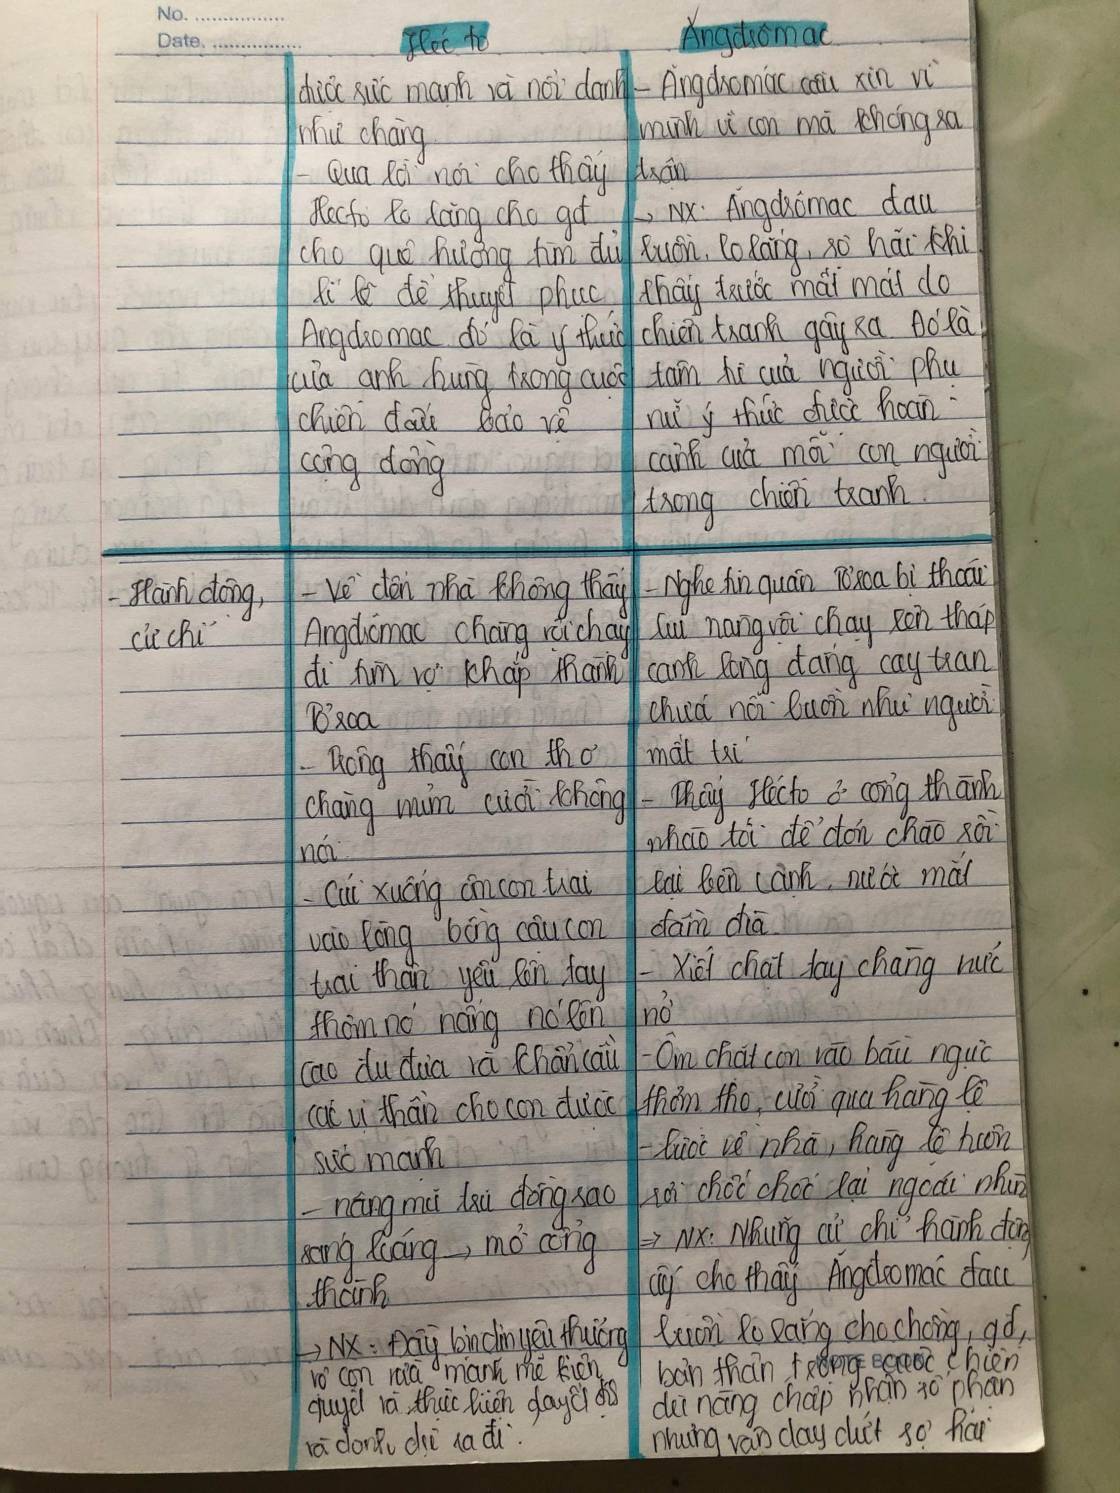 No. ................
Date. ................
Héc to
Ăngđrômac
được sức mạnh và nổi danh
như chàng
- Qua lời nói cho thấy
Hecto lo lắng cho gđ
cho quê hương tìm đủ
lí lẽ để thuyết phục
Angdromac đó là ý thức
của anh hùng trong cuộc
chiến đấu bảo vệ
cộng đồng
- Ăngdromác cầu xin vì
mình vì con mà không ra
trận
→ NX: Ăngdrómac đau
buồn, lo lắng, sợ hãi khi
thấy trước mất mát do
chiến tranh gây ra Đó là
tâm lí của người phụ
nữ ý thức được hoàn
cảnh của mỗi con người
trong chiến tranh.
- Hành động,
cử chỉ
- Về đến nhà không thấy
Angdromac chàng vội chạy
đi tìm vợ khắp thành
Tơroa
- Trông thấy con thơ
chàng mỉm cười không
nói
- Cúi xuống ôm con trai
vào lòng bồng cậu con
trai thân yêu lên tay
thơm nó nâng nó lên
cao đu đưa và khấn cầu
các vị thần cho con được
sức mạnh
- nâng mũ trụ đồng sao
sáng loáng → mở cổng
thành
→ NX: Đầy bịn dịn yêu thương
vợ con vừa mạnh mẽ kiên
quyết và thực hiện
và danh dự ra đi.
- Nghe tin quân Tơroa bị thoái
lui nàng vội chạy lên tháp
canh lòng đang cay tran
chứa nỗi buồn như người
mất trí
- Thấy Hécto ở cổng thành
nhào tới để đón chào rồi
lại bên cạnh, nước mắt
đầm đìa
- Xiết chặt tay chàng nức
nở
- Ôm chặt con vào bầu ngực
thơm tho, cười qua hàng lệ
- bước về nhà, hàng lệ tuôn
rơi chốc chốc lại ngoái nhìn
⇒ NX: Những cử chỉ hành động
ấy cho thấy Ăngdromac đau
buồn lo lắng cho chồng, gđ,
bản thân trong cuộc chiến
dù nàng chấp nhận số phận
nhưng vẫn day dứt sợ hãi